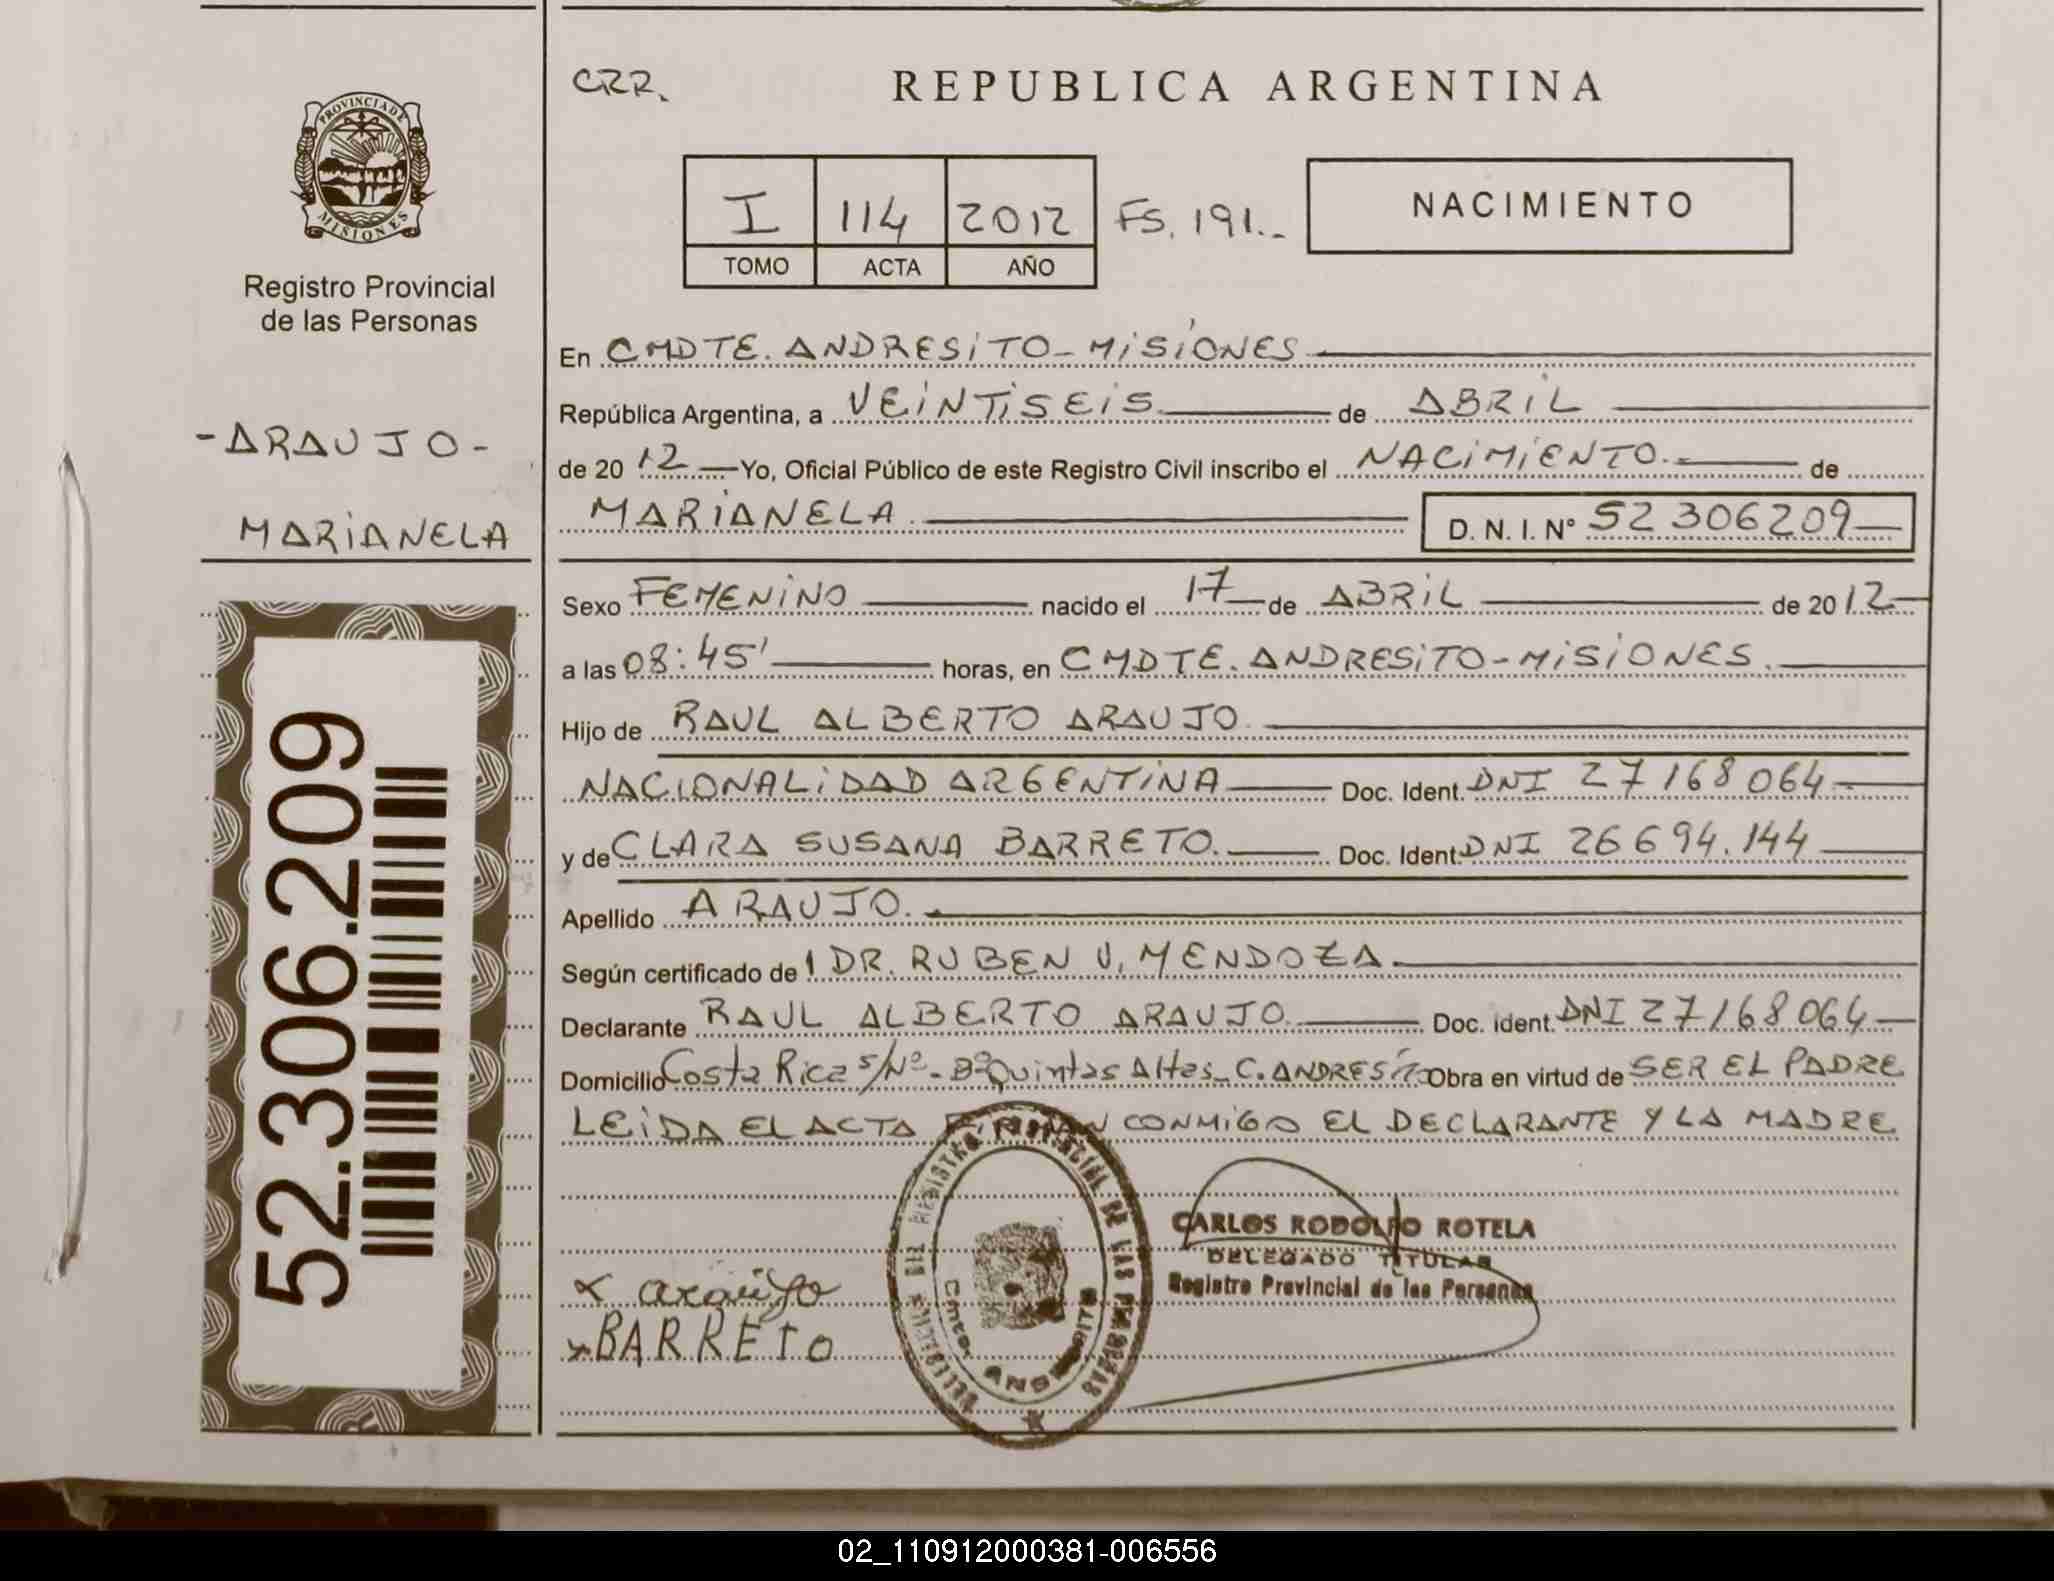 PROVINCIA DE
MISIONES
Registro Provincial
de las Personas
-ARAUJO-
MARIANELA
52.306.209
CRR.
REPUBLICA ARGENTINA
I 114 2012 FS. 191.-
TOMO ACTA AÑO
NACIMIENTO
En CMDTE. ANDRESITO - MISIONES
República Argentina, a VEINTISEIS de ABRIL
de 20 12 Yo, Oficial Público de este Registro Civil inscribo el NACIMIENTO.- de
MARIANELA. D. N. I. Nº 52 306209
Sexo FEMENINO nacido el 17 de ABRIL de 20 12
a las 08:45' horas, en CMDTE. ANDRESITO-MISIONES.
Hijo de RAUL ALBERTO ARAUJO
NACIONALIDAD ARGENTINA Doc. Ident. DNI 27168064
y de CLARA SUSANA BARRETO. Doc. Ident. DNI 26694.144
Apellido ARAUJO.
Según certificado de DR. RUBEN V. MENDOZA.
Declarante RAUL ALBERTO ARAUJO. Doc. ident. DNI 27168064
Domicilio Costa Rica s/Nº - Bº Quintas Altas - C. ANDRESITO Obra en virtud de SER EL PADRE
LEIDA EL ACTA FIRMAN CONMIGO EL DECLARANTE Y LA MADRE
REGISTRO PROVINCIAL DE LAS PERSONAS
Cmte. ANDRESITO
CARLOS RODOLFO ROTELA
DELEGADO TITULAR
Registro Provincial de las Personas
x araujo
x BARRETO
02_110912000381-006556